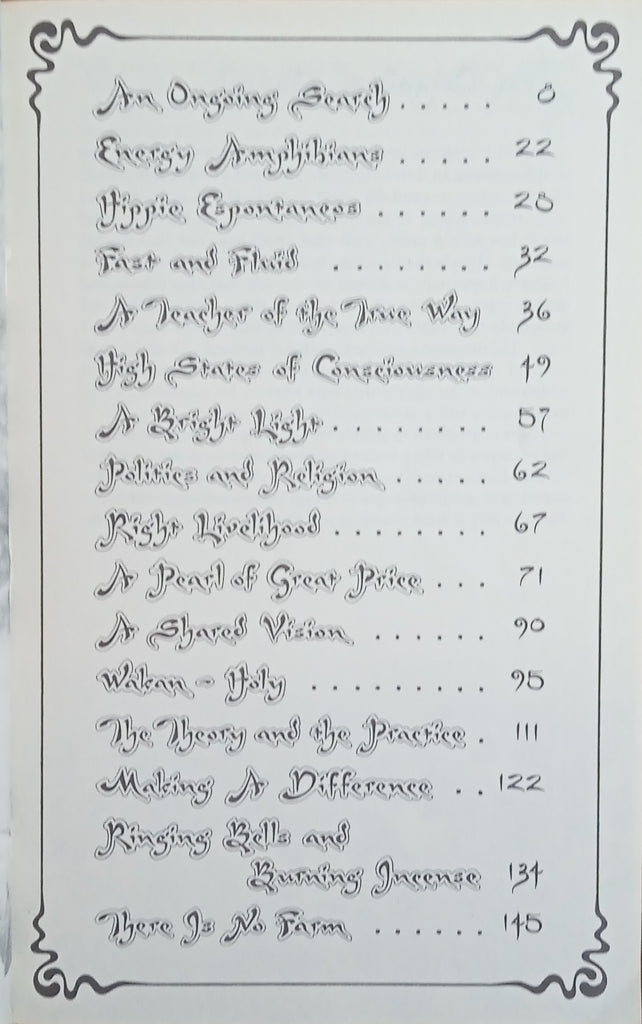 An Ongoing Search . . . . . 8
Energy Amphibians . . . . . 22
Hippie Espontaneos . . . . . . 28
Fast and Fluid . . . . . . . . 32
A Teacher of the True Way 36
High States of Consciousness 49
A Bright Light . . . . . . . . 57
Politics and Religion . . . . . 62
Right Livelihood . . . . . . . . 67
A Pearl of Great Price . . . 71
A Shared Vision . . . . . . 90
Wakan - Holy . . . . . . . . . 95
The Theory and the Practice . 111
Making A Difference . . 122
Ringing Bells and
Burning Incense 134
There Is No Farm . . . . . . 145